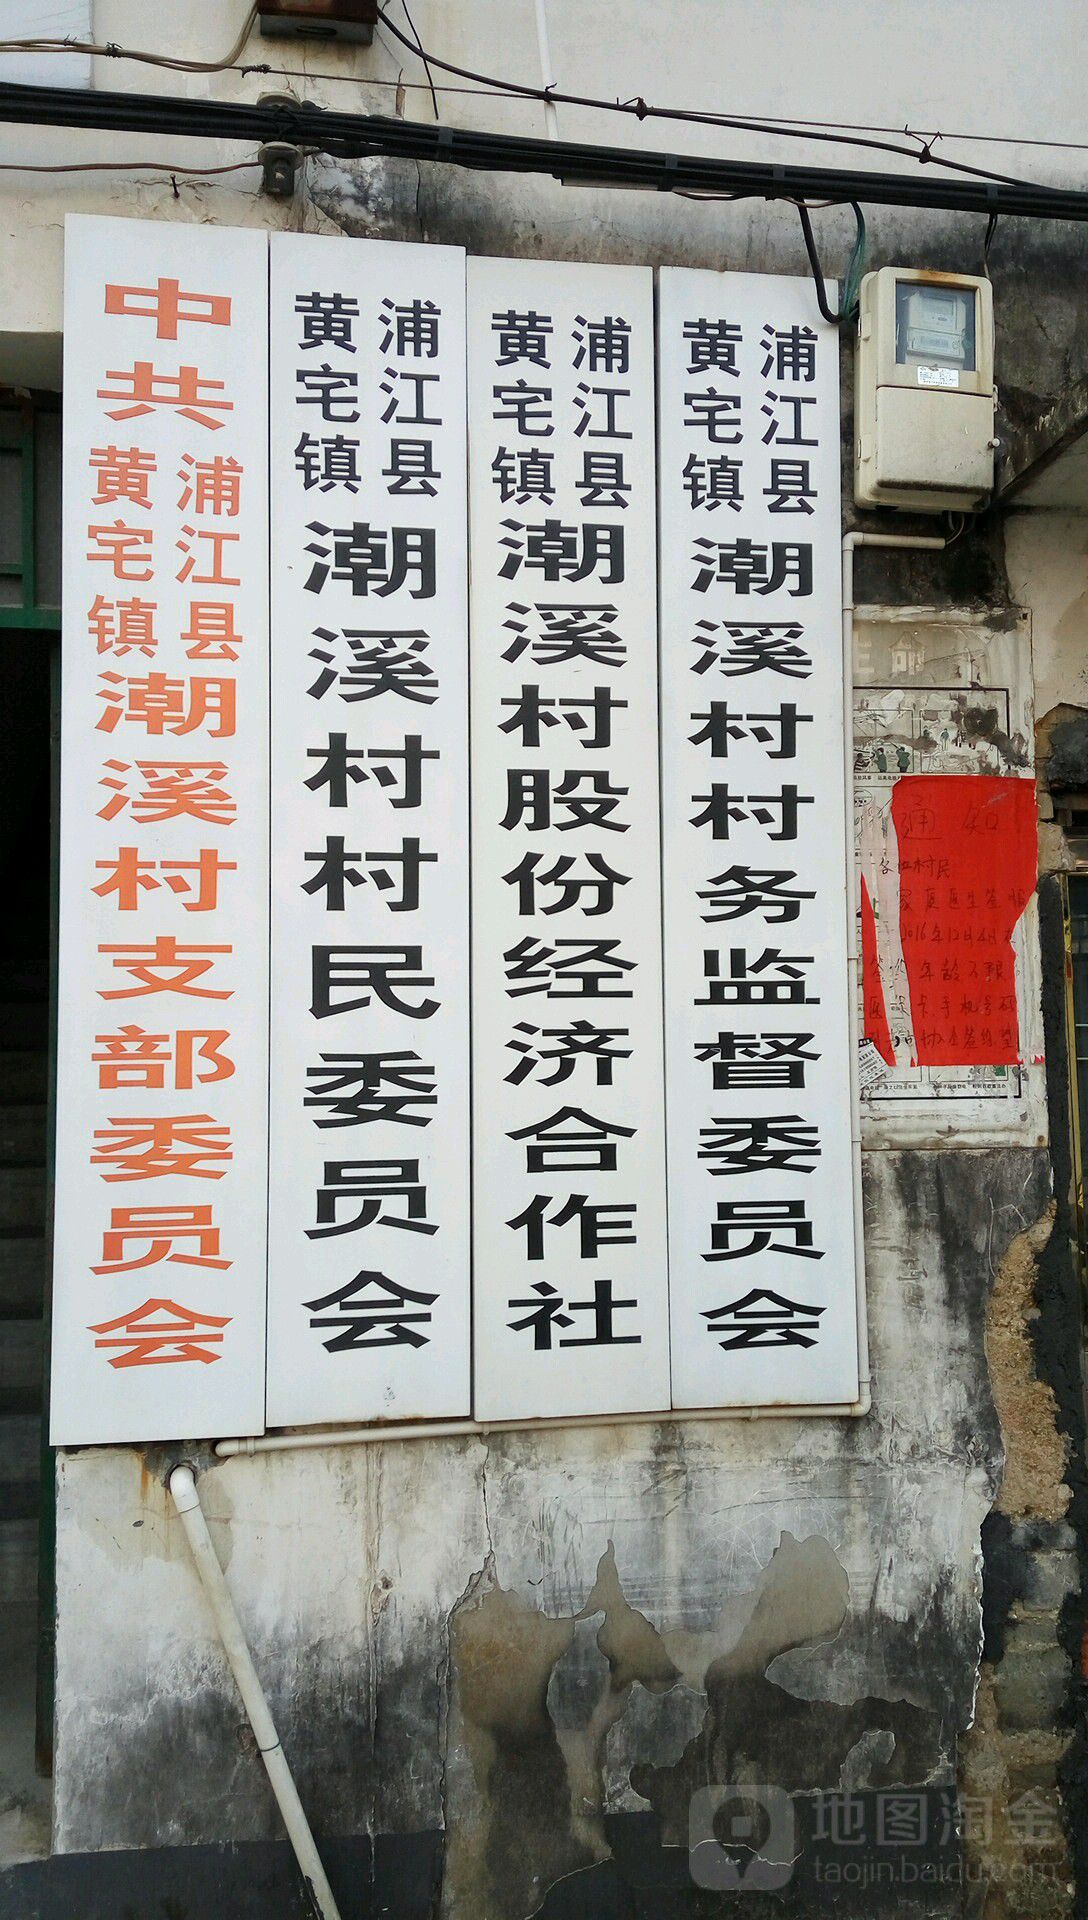 中共浦江县黄宅镇潮溪村支部委员会
浦江县黄宅镇潮溪村村民委员会
浦江县黄宅镇潮溪村股份经济合作社
浦江县黄宅镇潮溪村村务监督委员会
通知
各位村民
家庭医生签
2016年12月
年龄不限
卡手机号码
地图淘金
taojin.baidu.com